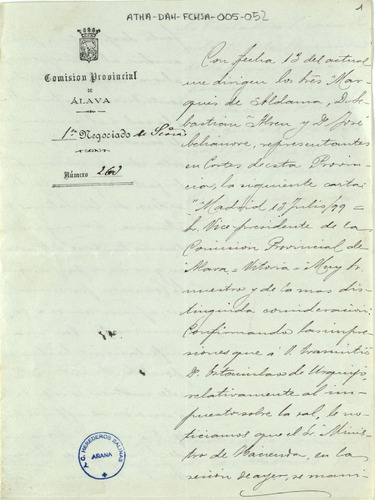 ATHA-DAH-FCHSA-005-052
1
Comision Provincial
DE
ÁLAVA
1er Negociado de Sría
Número 260
Con fecha 13 del actual
me dirigen los Sres Mar-
qués de Aldama, D. Se-
bastian Abreu y D. José
Echanove, representantes
en Cortes de esta Provin-
cia, la siguiente carta:
"Madrid 13 Julio/99 =
Sr. Vice-presidente de la
Comision Provincial de
Alava = Vitoria = Muy Sr.
nuestro y de la mas dis-
tinguida consideración:
Confirmando las impre-
siones que a V. trasmitió
D. Estanislao de Urquijo,
relativamente al im-
puesto sobre la sal, le no-
ticiamos que el Sr. Minis-
tro de Hacienda, en la
sesión de ayer, se mani-
HEREDEROS SALINAS
AÑANA